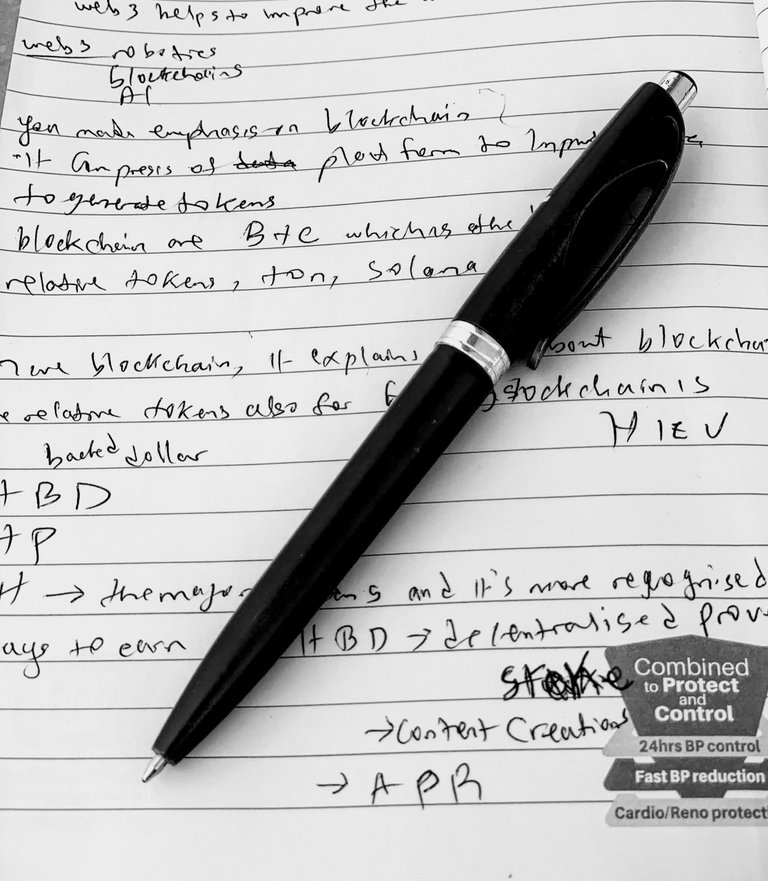 web3 helps to improve the
web3 robotics
blockchains
AI
you made emphasis on blockchain
"It Compresis of data platform to
to generate tokens
blockchain are BtC which is the
relative tokens, ton, Solana
blockchain, it explains about blockcha
relative tokens also for blockchain is
HIEV
backed dollar
+BD
+P
→ the major and it's more regognised
ays to earn HBD → delentralised prov
stake
→ Content Creations
→ APR
Combined
to Protect
and
Control
24hrs BP control
Fast BP reduction
Cardio/Reno protect